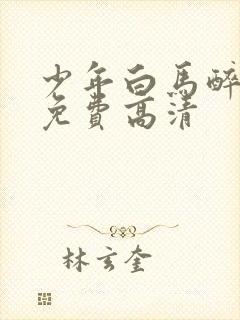 少年白马醉
免费高清
林玄奎